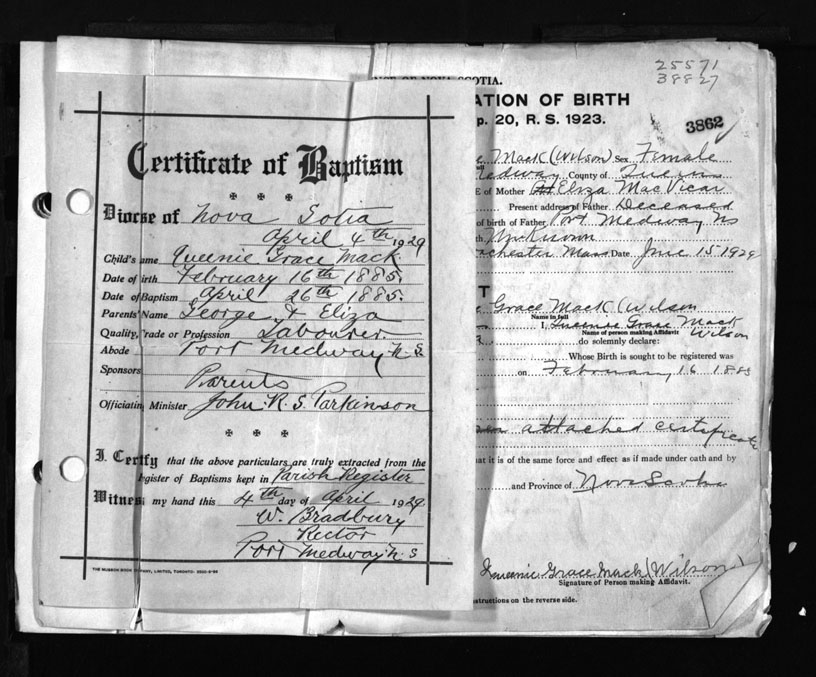 Certificate of Baptism
Diocese of Nova Sotia
April 4th 1929
Child's ame Queenie Grace Mack
Date of irth February 16th 1885.
Date of Baptism April 26th 1885.
Parents' Name George & Eliza
Quality, rade or Profession Labourer.
Abode Port Medway N.S.
Sponsors
Parents
Officiating Minister John R. S. Parkinson
I. Certify that the above particulars are truly extracted from the
egister of Baptisms kept in Parish Register
Witness my hand this 4th day of April 1929.
W. Bradbury
Rector
Port Medway N.S
25571
38827
NCE OF NOVA SCOTIA.
ATION OF BIRTH
p. 20, R. S. 1923.
3862
Mack (Wilson) Sex Female
edway County of Queens
E of Mother Eliza MacVicar
Present address of Father Deceased
of birth of Father Port Medway NS
th Unknown
chester Mass Date June 15 1929
T
Grace Mack (Wilson
Name in full
I, Queenie Grace Mack
Name of person making Affidavit Wilson
do solemnly declare:
Whose Birth is sought to be registered was
on February 16 1885
attached certificate
at it is of the same force and effect as if made under oath and by
and Province of Nova Scotia
Queenie Grace Mack (Wilson)
Signature of Person making Affidavit.
structions on the reverse side.